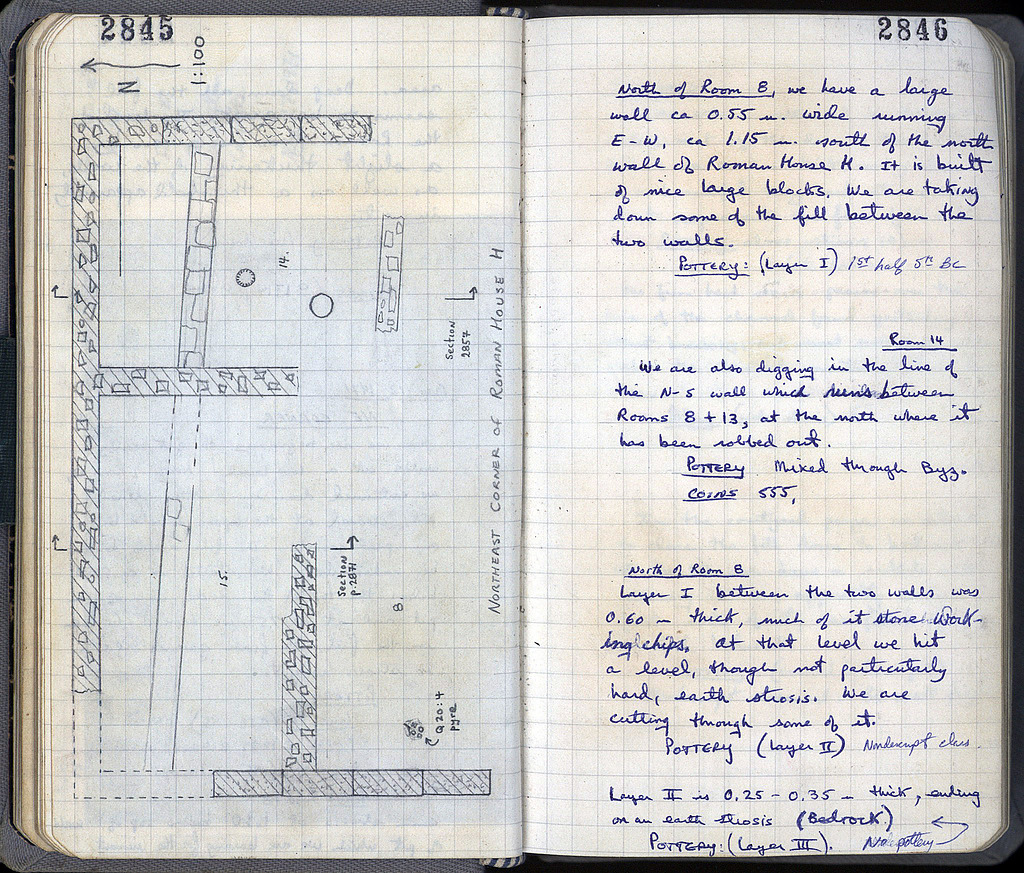 2845
N
1:100
14.
Section
2857
NORTHEAST CORNER of ROMAN HOUSE H
15.
Section
p.2871
8.
Q20:4
pyre
2846
North of Room 8, we have a large
wall ca 0.55 m. wide running
E-W, ca 1.15 m. south of the north
wall of Roman House H. It is built
of nice large blocks. We are taking
down some of the fill between the
two walls.
POTTERY: (Layer I) 1st half 5th BC
Room 14
We are also digging in the line of
the N-S wall which runs between
Rooms 8 + 13, at the north where it
has been robbed out.
POTTERY Mixed through Byz.
COINS 555,
North of Room 8
Layer I between the two walls was
0.60 m thick, much of it stone work-
ing chips. At that level we hit
a level, though not particularly
hard, earth strosis. We are
cutting through some of it.
POTTERY (Layer II) Nondescript class.
Layer II is 0.25 - 0.35 m thick, ending
on an earth strosis (Bedrock)
POTTERY: (Layer III). No pottery